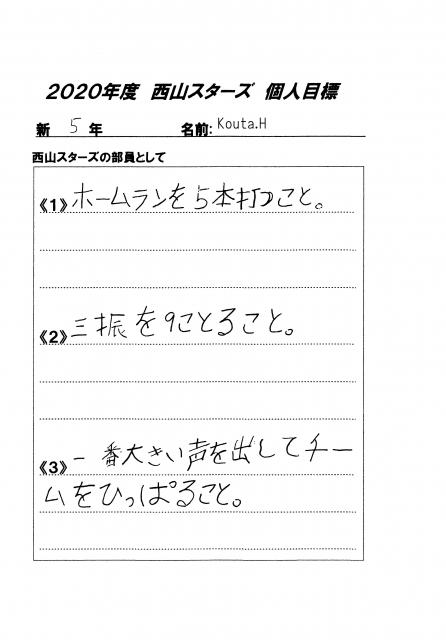 2020年度 西山スターズ 個人目標
新 5 年 名前: Kouta.H
西山スターズの部員として
《1》ホームランを5本打つこと。
《2》三振を9ことること。
《3》一番大きい声を出してチー
ムをひっぱること。